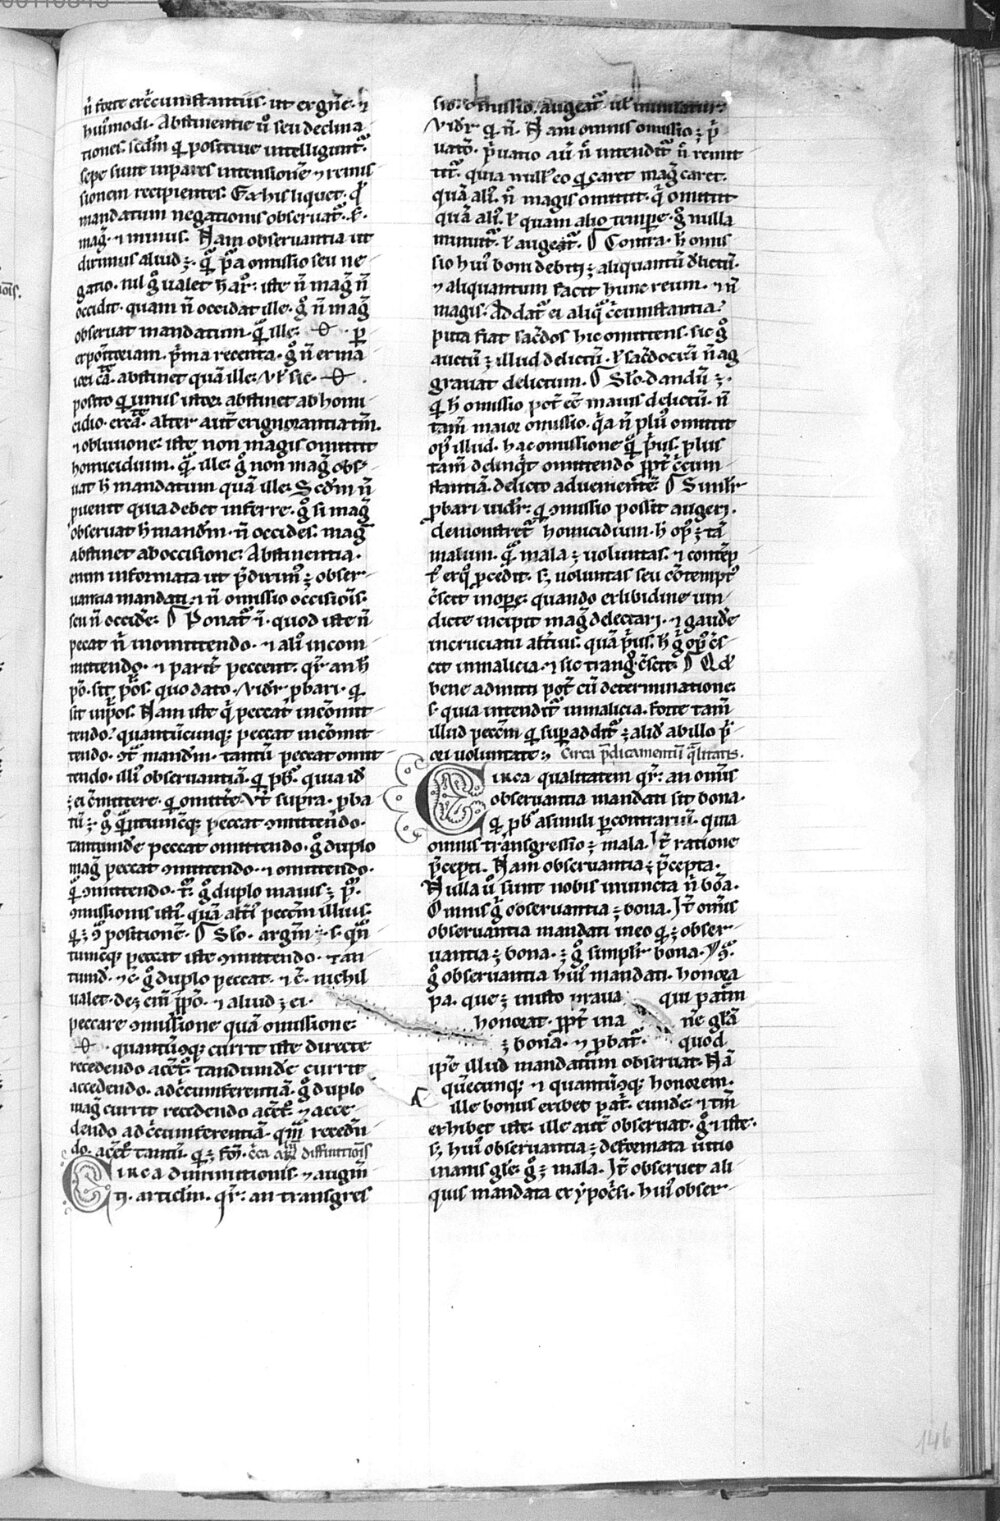 n̄ forte ex c̄cumstantiis· ut ex gn̄e· ⁊
hui᷒modi· Abstinentie ū seu declina
tiones sc̄dm qd̄ positiue intelligunt᷑
sepe sunt inpares intensionē ⁊ remis
sionem recipientes· Ex his liquet· qd̄
mandatum negationis obseruat᷑
maḡ· ⁊ minus· Nam obseruantia ut
diximus aliud ē· qͣ p̄a omissio seu ne
gatio· nil ḡ ualet h̄ ar᷑· iste n̄ maḡ n̄
occidit· quam n̄ occidat ille· ḡ n̄ maḡ
obseruat mandatum· qͣ ille·
posito qd̄ unus istoꝝ abstinet ab homi
cidio· alter aut̄ ex ignorantia tm̄·
⁊ obliuione· iste non magis omittit
homicidium· qͣ ille· ḡ non maḡ obs̄
uat h̄ mandatum quā ille· Sc̄dm n̄
puenit quia debet inferre· ḡ si maḡ
obseruat h̄ mandm̄· n̄ occides· maḡ
abstinet ab occisione· Abstinentia·
enim informata ut p̄dixim᷒ ē obser
uantia mandati· ⁊ n̄ omissio occisiōis·
seu n̄ occide· ¶ Ponat᷑ ḡ· quod iste n̄
peccat n̄ in omittendo· ⁊ ali᷒ in com
mittendo· ⁊ parit̄ peccent· qr᷑ an h̄
sit inp̄os· Nam iste qͥ peccat in cōmit
tendo· quantūcunqꝫ peccat in cōmit
tendo· ꝯt᷑ mandm̄· tantū peccat omit
tendo· illi᷒ obseruantiā· qd̄ pb᷑· quia id̄
ē ei cōmittere· qd̄ omittē· Vt̄ supra· ꝓba
tū ē· ḡ qͣntumcūqꝫ peccat ꝯmittendo·
tantunde peccat omittendo· ḡ duplo
maḡ peccat ꝯmittendo· ⁊ omittendo·
qͣ ꝯmittendo· ḡ duplo maius ē
ꝯmissionis isti᷒ quā alt̄i᷒ peccm̄ illius·
qd̄ ē ꝯ positionē· ¶ Slo· argm̄
tumcūqꝫ peccat iste ꝯmittendo· tan
tund· ⁊c̄· ḡ duplo peccat· ⁊c̄· nichil
ualet· ⁊ aliud ē ei·
peccare ꝯmissione quā omissione·
quantūcūqꝫ currit iste directe
recedendo a cent᷑· tandunde currit
accedendo· ad c̄cumferentiā· ḡ duplo
maḡ currit recedendo a cent᷑· ⁊ acce
dendo ad c̄cumferentiā· qm̄ recedē
do· a cent᷑ tantū· diffinitiōis
Circa diminutionis· ⁊ augm̄
ti· articlm̄· qr᷑· an transgres
sio· omissio· augeat᷑ ul̄ minuatur·
Videt᷑ qd̄ n̄· Nam omnis omissio ē p̄
uatō· p̄uatio aū n̄ intendit᷑ n̄ remit
tit᷑· quia null᷒ eo qd̄ caret maḡ caret·
quā ali᷒· n̄ magis omittit· qͥ omittit
quā ali᷒· ł quam alio tempore· ḡ nulla
minuit᷑· ł auget᷑· ¶ Contra· h̄ omis
sio hui᷒ boni debiti ē aliquantū delictū·
⁊ aliquantum facit hunc reum· ⁊ n̄
magis· Addat᷑ ei aliqͣ c̄cumstantia·
puta fiat sac̄dos hic omittens· sic ḡ
auctū ē illud delictū· ł sac̄dociū n̄ ag
grauat delictum· ¶ Slo· dandū ē·
qd̄ h̄ omissio pot᷑ eē maius delictū· n̄
tam̄ maior omissio· qͣ n̄ pl᷒ omittit
op᷒ illud· hac omissione qͣ p̄us· plus
tam̄ delinqͥt omittendo ꝓpt̄ c̄cum
stantiā· delicto aduenientē· ¶ Similr᷑
ꝓbari uidet᷑· qd̄ ꝯmissio possit augeri·
demonstret᷑ homicidium· h̄ op᷒ ē tā
malum· qͣ mala ē uoluntas· ⁊ contēp
t᷒ ex qͦ ꝓcedit· sꝫ uoluntas seu cōtempt᷒
c̄scit in ope· quando ex libidine uin
dicte incipit maḡ delectari· ⁊ gaude
in cruciatu alteri᷒· quā p̄us· h̄ ḡ op᷒ c̄s
cit in malicia· ⁊ sic transḡ· c̄scit· ¶ Qd̄
bene admitti pot᷑ cū determinatione·
s· quia intendit᷑ in malicia· forte tam̄
illud peccm̄ qd̄ supaddit᷑ ē aliud ab illo p̄
cei uoluntate· Circa p̄dicamentū qͣlitatis·
Circa qualitatem qr᷑· an omīs
obseruantia mandati sit bona·
qd̄ pb᷑ a simili p contrariū· quia
omnis trāsgressio ē mala· It̄ ratione
p̄cepti· Nam obseruantia ē p̄cepta·
Nulla ū sunt nobis iniuncta n̄ bōa·
Omnis ḡ obseruantia ē bona· It̄ omīs
obseruantia mandati in eo qd̄ ē obser
uantia ē bona· ē ḡ simplr᷑ bona·
ḡ obseruantia hui᷒ mandati· honora
pa· que ē in isto praua qui patrē
honorat· ꝓpt̄ ina nē gloriā
ē bona· ⁊ ꝓbat᷑· quod
ipse illud mandatum obseruat· Nā
quēcunqꝫ ⁊ quantūcūqꝫ honorem·
ille bonus exibet pat᷑· eunde· ⁊ tm̄
exhibet iste· ille aut̄ obseruat· ḡ ⁊ iste·
sꝫ hui᷒ obseruantia ē deformata uitio
inanis glē· ḡ ē mala· It̄ obseruet ali
quis mandata ex ypoc̄si· hui᷒ obser
146